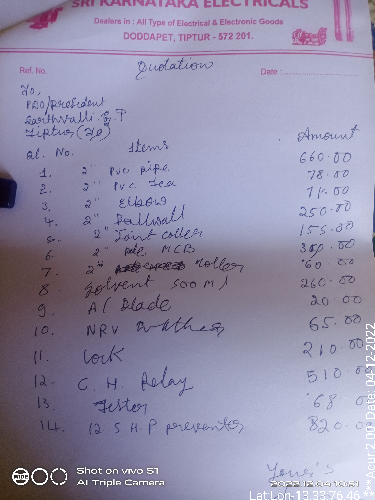 SRI KARNATAKA ELECTRICALS
Dealers in : All Type of Electrical & Electronic Goods
DODDAPET, TIPTUR - 572 201.
Ref. No.
Quotation
Date :
To,
PDO/president
G.P
Tiptur (Tq)
Sl. No. Items Amount
1. 2" PVC pipe 660.00
2. 2" PVC Tea 78.00
3. 2" Elbow 71.00
4. 2" 250.00
5. 2" Joint coller 155.00
6 2" MCB 350.00
7 2" coller 60.00
8 Solvent 500 Ml 260.00
9. A/ Blade 20.00
10. NRV 65.00
11. Cork 210.00
12. C. H. Relay 510.00
13. Tester 68.00
14. 12 S H P preventer 820.00
Shot on vivo S1
AI Triple Camera
2022.12.04